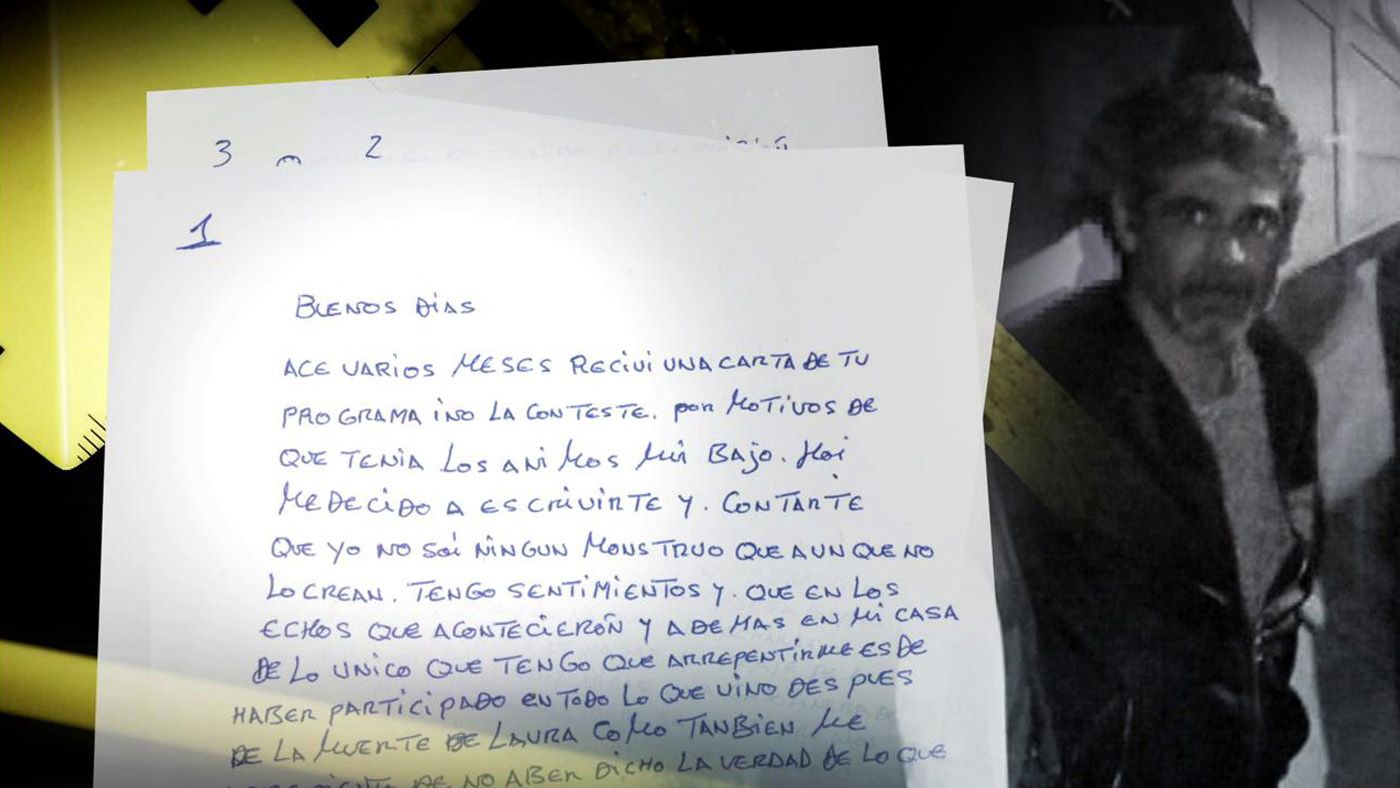 3 2
1
BUENOS DÍAS
ACE VARIOS MESES RECIVI UNA CARTA DE TU
PROGRAMA i NO LA CONTESTE. POR MOTIVOS DE
QUE TENIA LOS ANIMOS MUi BAJO. HOi
ME DECIDO A ESCRIVIRTE Y. CONTARTE
QUE YO NO SOi NINGUN MONSTRUO QUE AUNQUE NO
LO CREAN. TENGO SENTIMIENTOS Y. QUE EN LOS
ECHOS QUE ACONTECIERON Y ADEMAS EN MI CASA
DE LO UNICO QUE TENGO QUE ARREPENTIRME ES DE
HABER PARTICIPADO EN TODO LO QUE VINO DESPUES
DE LA MUERTE DE LAURA COMO TANBIEN ME
DE NO ABER DICHO LA VERDAD DE LO QUE